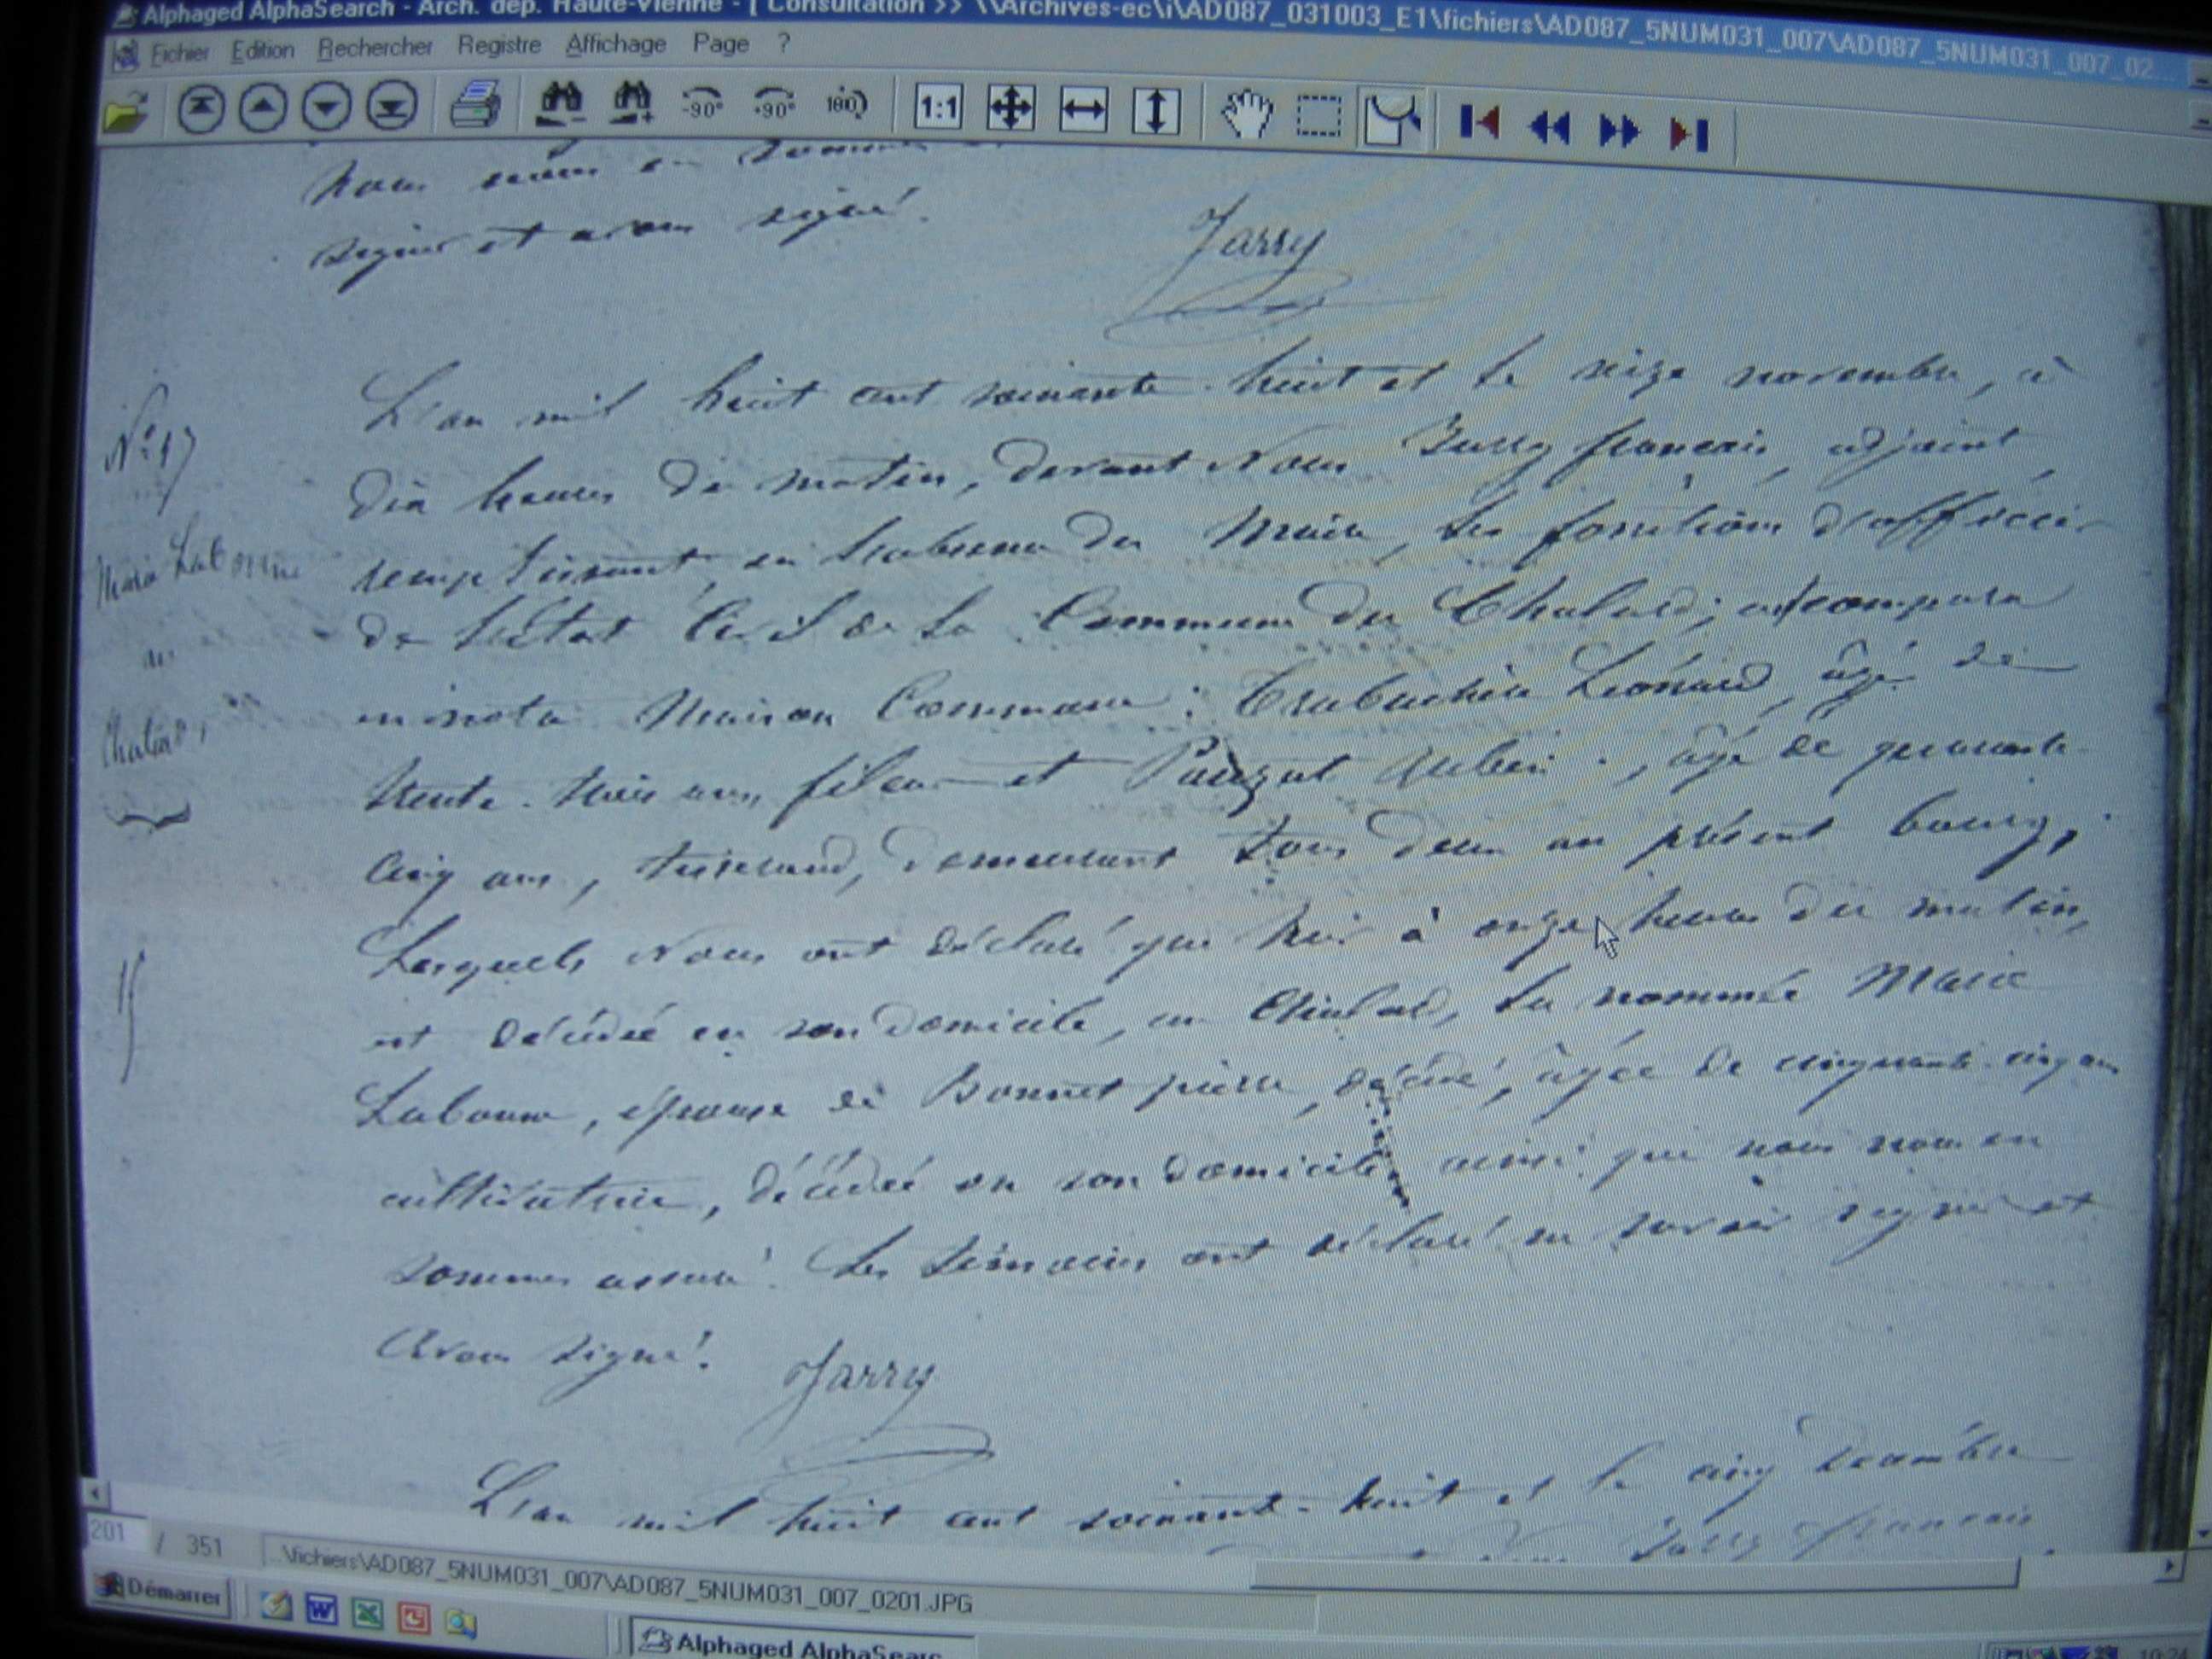 Alphaged AlphaSearch - Arch. dép. Haute-Vienne - [ Consultation >> \\Archives-ec\i\AD087_031003_E1\fichiers\AD087_5NUM031_007\AD087_5NUM031_007_02...
Fichier Edition Rechercher Registre Affichage Page ?
-90° +90° 180 1:1
signer et avons signé.
Jarry
N° 17
Marie Labonne
au
Chalard,
L'an mil huit cent soixante-huit et le seize novembre, à
dix heures du matin, devant Nous Jarry françois, adjoint,
remplissant, en l'absence du Maire, les fonctions d'officier
de l'état Civil de la Commune du Chalard; ont comparu
en notre Maison Commune: Trabuchie Léonard, âgé de
trente-trois ans, fileur et Pauzat Aubin, âgé de quarante-
cinq ans, tisserand, demeurant tous deux au présent bourg,
Lesquels Nous ont déclaré que hier à onze heures du matin,
est décédée en son domicile, au Chalard, la nommée Marie
Labonne, épouse de Bonnet pierre, décédé, âgée de cinquante-cinq ans
cultivatrice, décédée en son domicile ainsi que nous nous en
sommes assuré. Les témoins ont déclaré ne savoir signer et
Avons signé.
Jarry
L'an mil huit cent soixante-huit et le cinq décembre
Jarry françois
201 / 351 ..\fichiers\AD087_5NUM031_007\AD087_5NUM031_007_0201.JPG
Démarrer Alphaged AlphaSearc...
10:24